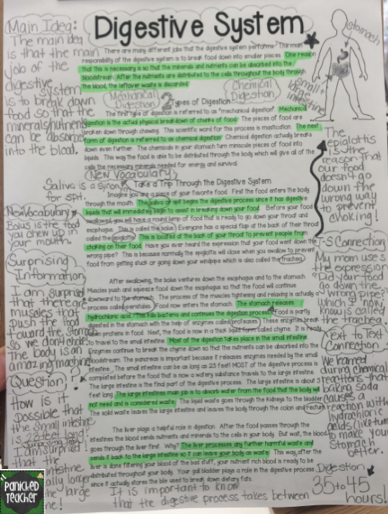 Digestive System
Main Idea:
The main idea
is that the main
job of the
digestive
system
is to break down
food so that the
minerals
can be absorbed
into the blood.
There are many different jobs that the digestive system performs. The main
responsibility of the digestive system is to break down food into smaller pieces. One reason
that this is necessary is so that the minerals and nutrients can be absorbed into the
bloodstream. After the nutrients are distributed to the cells throughout the body through
the blood, the leftover waste is discarded.
Mechanical
Digestion
Chemical
Digestion
2
Types of Digestion
The first type of digestion is referred to as "mechanical digestion". Mechanical
digestion is the actual physical breakdown of chunks of food. The pieces of food are
broken down through chewing. This scientific word for this process is mastication. The next
form of digestion is referred to as chemical digestion. Chemical digestion actually breaks
down even further. The chemicals in your stomach turn miniscule pieces of food into
liquids. This way the food is able to be distributed through the body which will give all of the
cells the necessary minerals needed for energy and survival.
New Vocabulary
Saliva is a synonym
for spit.
Take a Trip Through the Digestive System
Imagine you are eating your favorite food. First the food enters the body
through the mouth. The saliva or spit begins the digestive process since it has digestive
liquids that will immediately begin to assist in breaking down your food. Before your food
New Vocabulary
Bolus is the food
you chew up in
your mouth.
This is called the bolus. Everyone has a special flap at the back of their throat
called the epiglottis. This is located at the back of your throat to prevent people from
choking on their food. Have you ever heard the expression that your food went down the
wrong pipe? This is because normally the epiglottis will close when you swallow to prevent
food from getting stuck or going down your windpipe which is also called the trachea.
Surprising
Information
I am surprised
that there are
muscles that
push the food
toward the stomach
so we don't choke.
The body is an
amazing machine.
After swallowing, the bolus ventures down the esophagus and to the stomach.
Muscles push and squeeze food down the esophagus so that the food will continue
downward to the stomach. The process of the muscles tightening and relaxing is actually a
process called peristalsis. Food now enters the stomach. The stomach releases
hydrochloric acid. This kills bacteria and continues the digestion process. Food is partly
digested in the stomach with the help of enzymes called proteases. These enzymes break
down proteins in food. Next, the food is now in a thick liquid form called chyme. It is ready
to travel to the small intestine. Most of the digestion takes place in the small intestine.
Enzymes continue to break the chyme down so that the nutrients can be absorbed into the
bloodstream. The pancreas is important because it releases enzymes needed by the small
intestine. The small intestine can be as long as 23 feet! MOST of the digestive process is
completed before the food that is now a watery substance travels to the large intestine.
The large intestine is the final part of the digestive process. The large intestine is about
feet long. The large intestines main job is to absorb water from the food that the body will
not need and is considered waste. The liquid waste goes through the kidneys to the bladder.
The solid waste leaves the large intestine and leaves the body through the colon and rectum.
Question:
How is it
possible that
the small
intestine is
23 feet long!
I am surprised
that the
intestine
is actually longer
than the large
one!
The liver plays a helpful role in digestion. After the food passes through the
intestines the blood sends nutrients and minerals to the cells in your body. But wait, the blood
goes through the liver first. Why? The liver processes any further harmful waste and
sends it back to the large intestine so it can leave your body as waste. This way after the
liver is done filtering your blood of the bad stuff, your nutrient rich blood is ready to be
distributed throughout your body. Your gall bladder plays a role in the digestive process
since it actually stores the bile used to break down dietary fats.
It is important to know
that the digestive process takes between
Digestion
35 to 45
hours!
The
epiglottis
is the
reason that
our food
doesn't
go down the
wrong way
to prevent
choking!
T-S Connection
My mom uses
the expression
"Did your food
go down the
wrong pipe"
which I now
know is called
the trachea!
Text to Text
Connection
We learned
during chemical
reactions that
baking soda
causes a
reaction with
hydrochloric
acids
to make
your
stomach
better.
esophagus
Small
Large
intestine
Panicked
Teacher